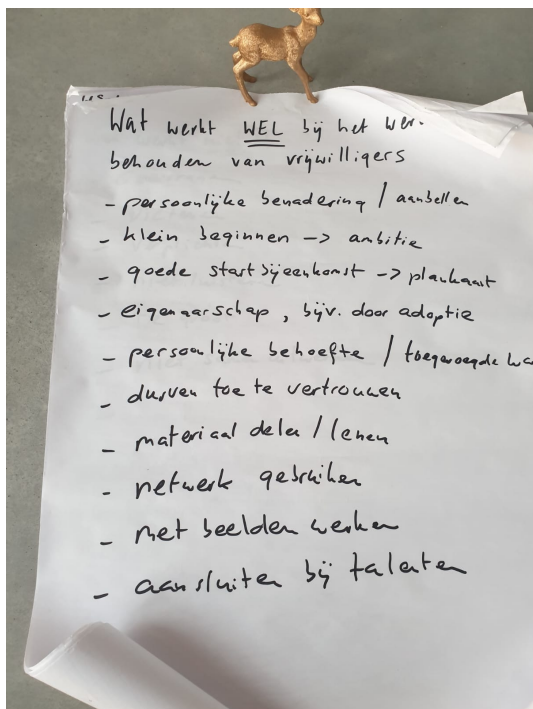 Wat werkt WEL bij het wer.
behouden van vrijwilligers
- persoonlijke benadering / aanbellen
- klein beginnen -> ambitie
- goede startbijeenkomst -> plankaart
- eigenaarschap, bijv. door adoptie
- persoonlijke behoefte / toegevoegde wa
- durven toe te vertrouwen
- materiaal delen / lenen
- netwerk gebruiken
- met beelden werken
- aansluiten bij talenten